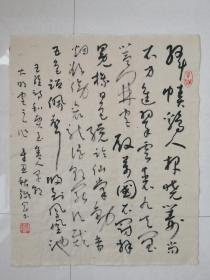 絳幘鷄人报晓筹尚
衣方进翠云裘九天阊
阖开宫殿万国衣冠拜
冕旒日色才临仙掌动香
烟欲傍衮龙浮朝罢须裁
五色诏佩声归到凤池
王维诗和贾至舍人早朝
大明宫之作 辛丑秋